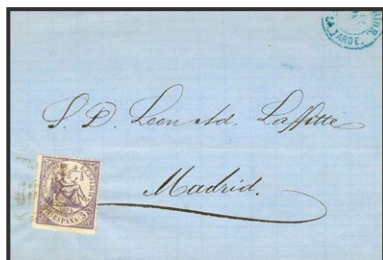 LA TARDE.
S. D. Leonold. Laffitte
Madrid.
ESPAÑA